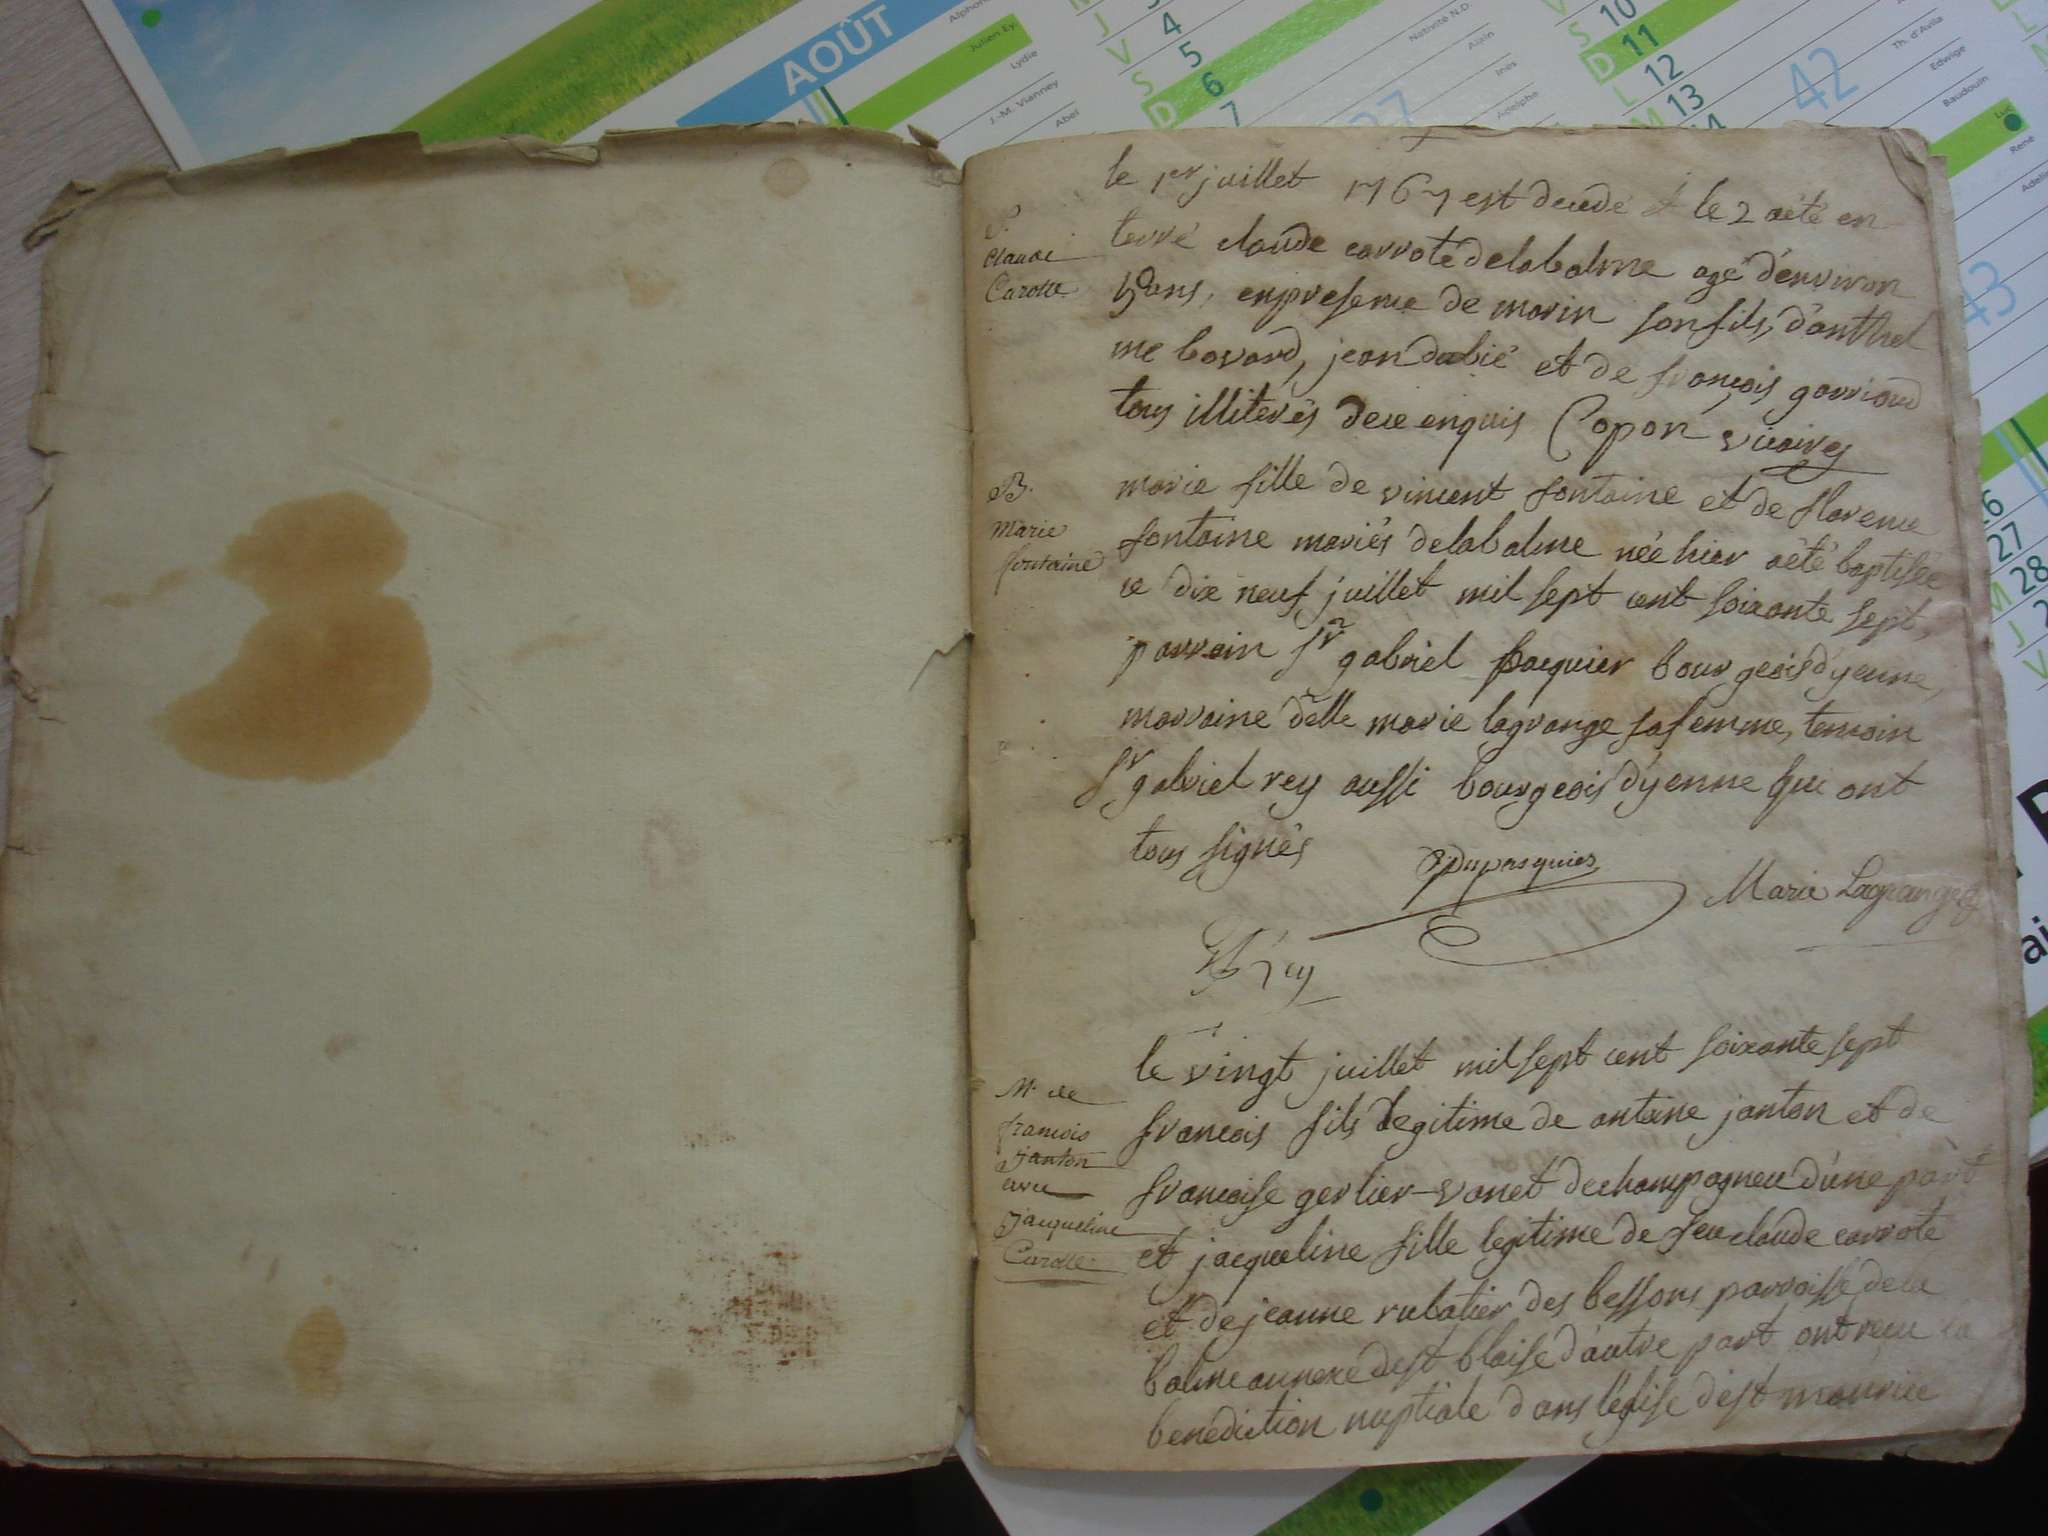 AOÛT
Julien Ey.
Lydie
J.-M. Vianney
Abel
4
5
6
7
Nativité N.D
Alain
Inès
Adelphe
10
11
12
13
42
Th. d'Avila
Edwige
Baudouin
Luc
René
43
26
27
28
S.
Claude
Carotte
le 1er juillet 1767 est decedé & le 2 aété en
terré claude carroté delabalme agé d'environ
50 ans, enpresence de marin son fils, d'anthel
me bovard, jean dubié et de francois garrioud
tous illiterés dece enquis Copon vicaire
B.
Marie
fontaine
marie fille de vincent fontaine et de florence
fontaine mariés delabalme née hier aété baptisée
ce dix neuf juillet mil sept cent soixante sept,
parrain sr gabriel pacquier bourgeois d'yenne,
marraine delle marie lagrange safemme, temoin
sr gabriel rey aussi bourgeois d'yenne qui ont
tous signés
Dupasquier
Marie Lagrange
Rey
M. de
francois
janton
avec
Jacqueline
Carotte
le vingt juillet mil sept cent soixante sept
francois fils legitime de antoine janton et de
francoise gerlier-vanet dechampagneu d'une part
et jacqueline fille legitime de feu claude carrote
et de jeanne rubatier des bessons parroisse dela
balme annexe dest blaise d'autre part ont recu la
benediction nuptiale dans l'église d'st maurice